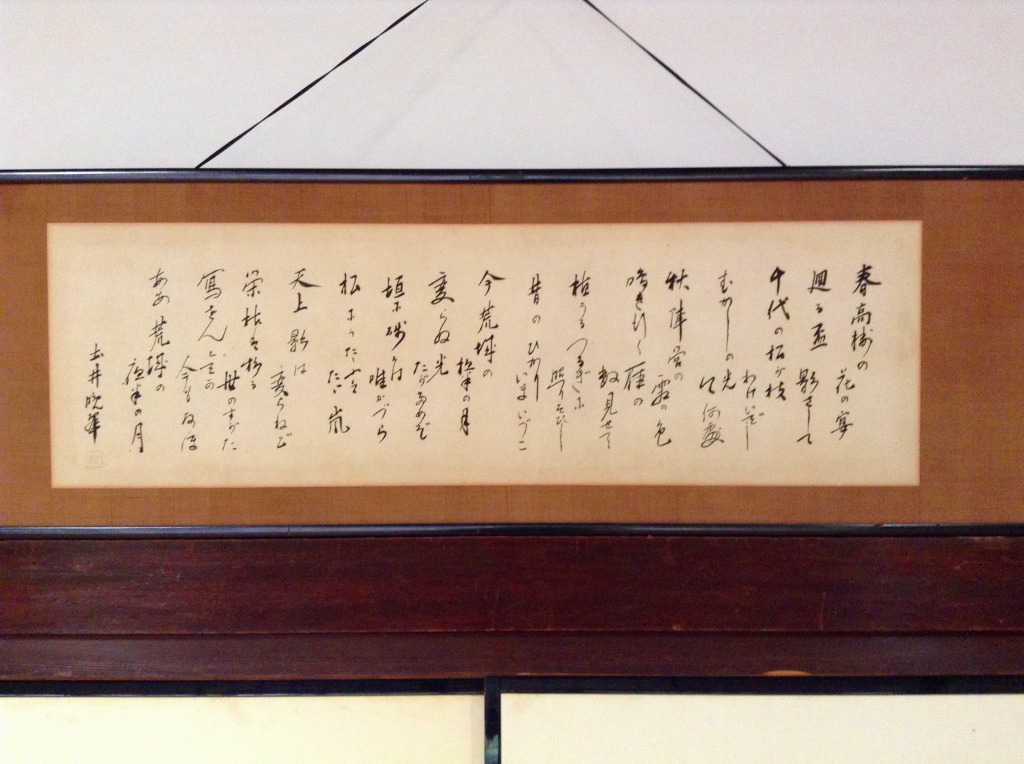 春高樓の
花の宴
廻る盃
影さして
千代の松が枝
わけいでし
むかしの光
今何處
秋陣営の
霜の色
鳴き行く雁の
数見せて
植うるつるぎに
照りそひし
昔のひかり
いまいづこ
今荒城の
夜半の月
変らぬ光
たがためぞ
垣に残るは
唯かづら
松にうたふは
たゞ嵐
天上影は
変らねど
栄枯は移る
世のすがた
寫さんとてか
今もなほ
ああ荒城の
夜半の月
土井晩翠